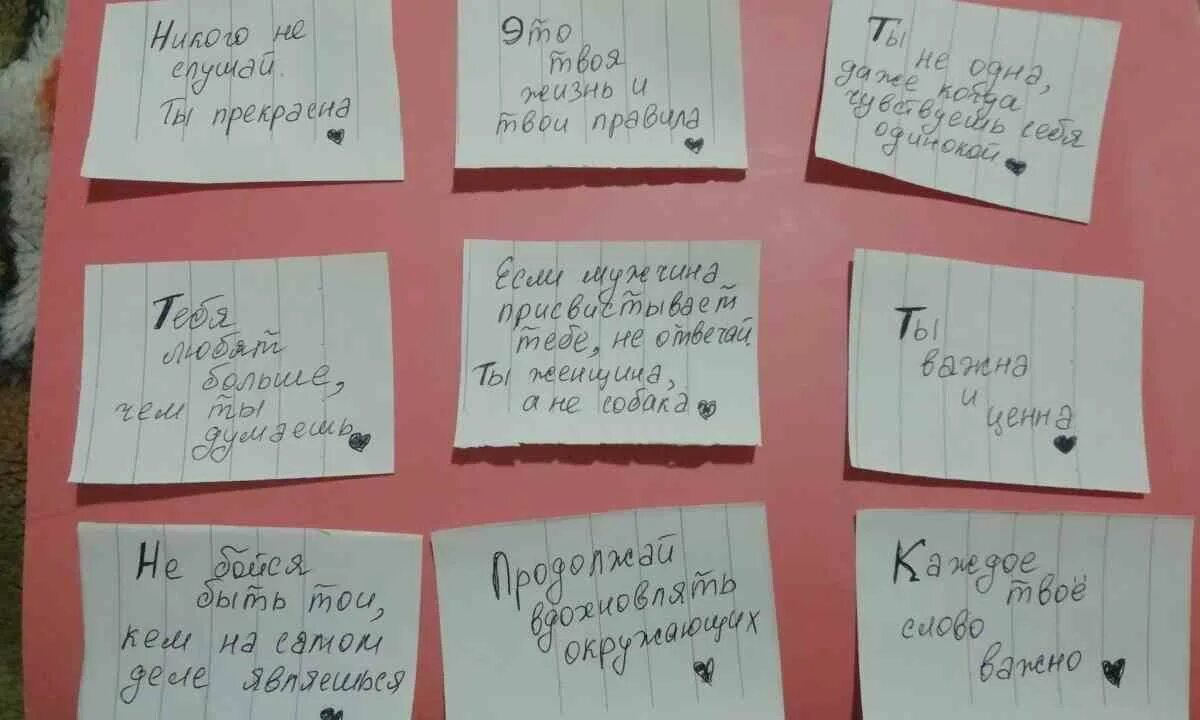 Никого не
слушай.
Ты прекрасна
Это
твоя
жизнь и
твои правила
Ты
не одна,
даже когда
чувствуешь себя
одинокой
Тебя
любят
больше,
чем ты
думаешь
Если мужчина
присвистывает
тебе, не отвечай.
Ты женщина,
а не собака
Ты
важна
и
ценна
Не бойся
быть той,
кем на самом
деле являешься
Продолжай
вдохновлять
окружающих
Каждое
твоё
слово
важно